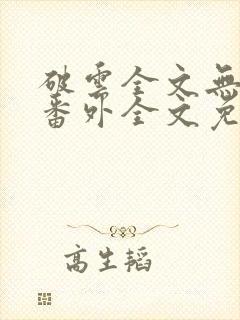 破雲全文無
番外全文免
高生韜